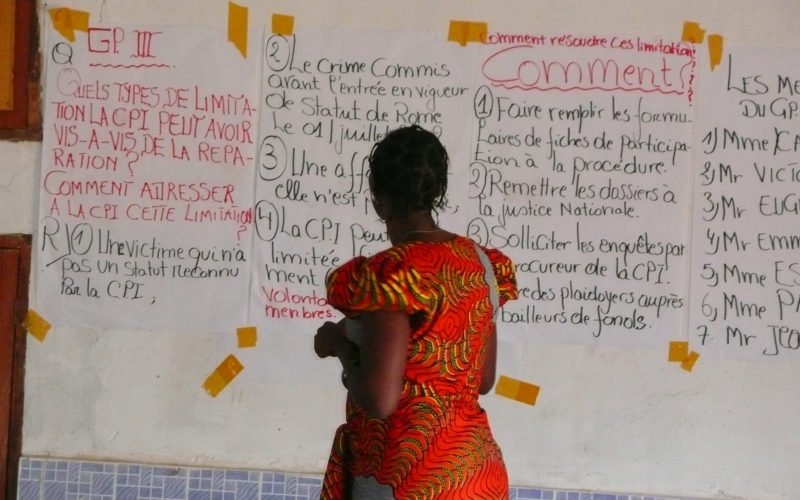 GP III
Q
QUELS TYPES DE LIMITA-
TION LA CPI PEUT AVOIR
VIS-A-VIS DE LA REPA-
RATION ?
COMMENT ADRESSER
A LA CPI CETTE LIMITATION
?
R) ① Une victime qui n'a
pas un statut reconnu
Par la CPI ;
② Le Crime Commis
avant l'entrée en vigueur
de Statut de Rome
Le 01 juillet
③ Une aff
elle n'est
④ La CPI peut
limitée
ment
Volonta
membres.
Comment résoudre ces limitations
Comment ?
① Faire remplir les formu-
laires de fiches de participa-
tion à la procédure.
② Remettre les dossiers à
la justice Nationale.
③ Solliciter les enquêtes par
rocureur de la CPI.
re des plaidoyers auprès
bailleurs de fonds.
LES ME
DU GP
1) Mme KA
2) Mr VICTO
3) Mr EUG
4) Mr Emm
5) Mme ES
6) Mme PA
7. Mr JEO